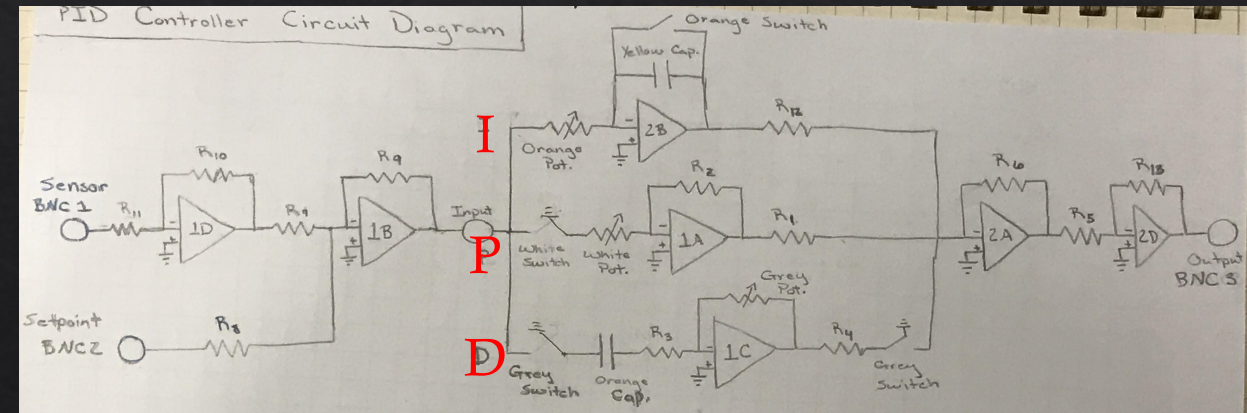 PID Controller Circuit Diagram
Orange Switch
Yellow Cap.
I
2B
R12
Orange
Pot.
R10
R9
R2
R6
R13
Sensor
BNC 1
R11
1D
R9
1B
Input
P
White
Switch
White
Pot.
1A
R1
2A
R5
2D
Output
BNC 3
Grey
Pot.
Setpoint
BNC2
R8
D
Grey
Switch
Orange
Cap.
R3
1C
R4
Grey
Switch